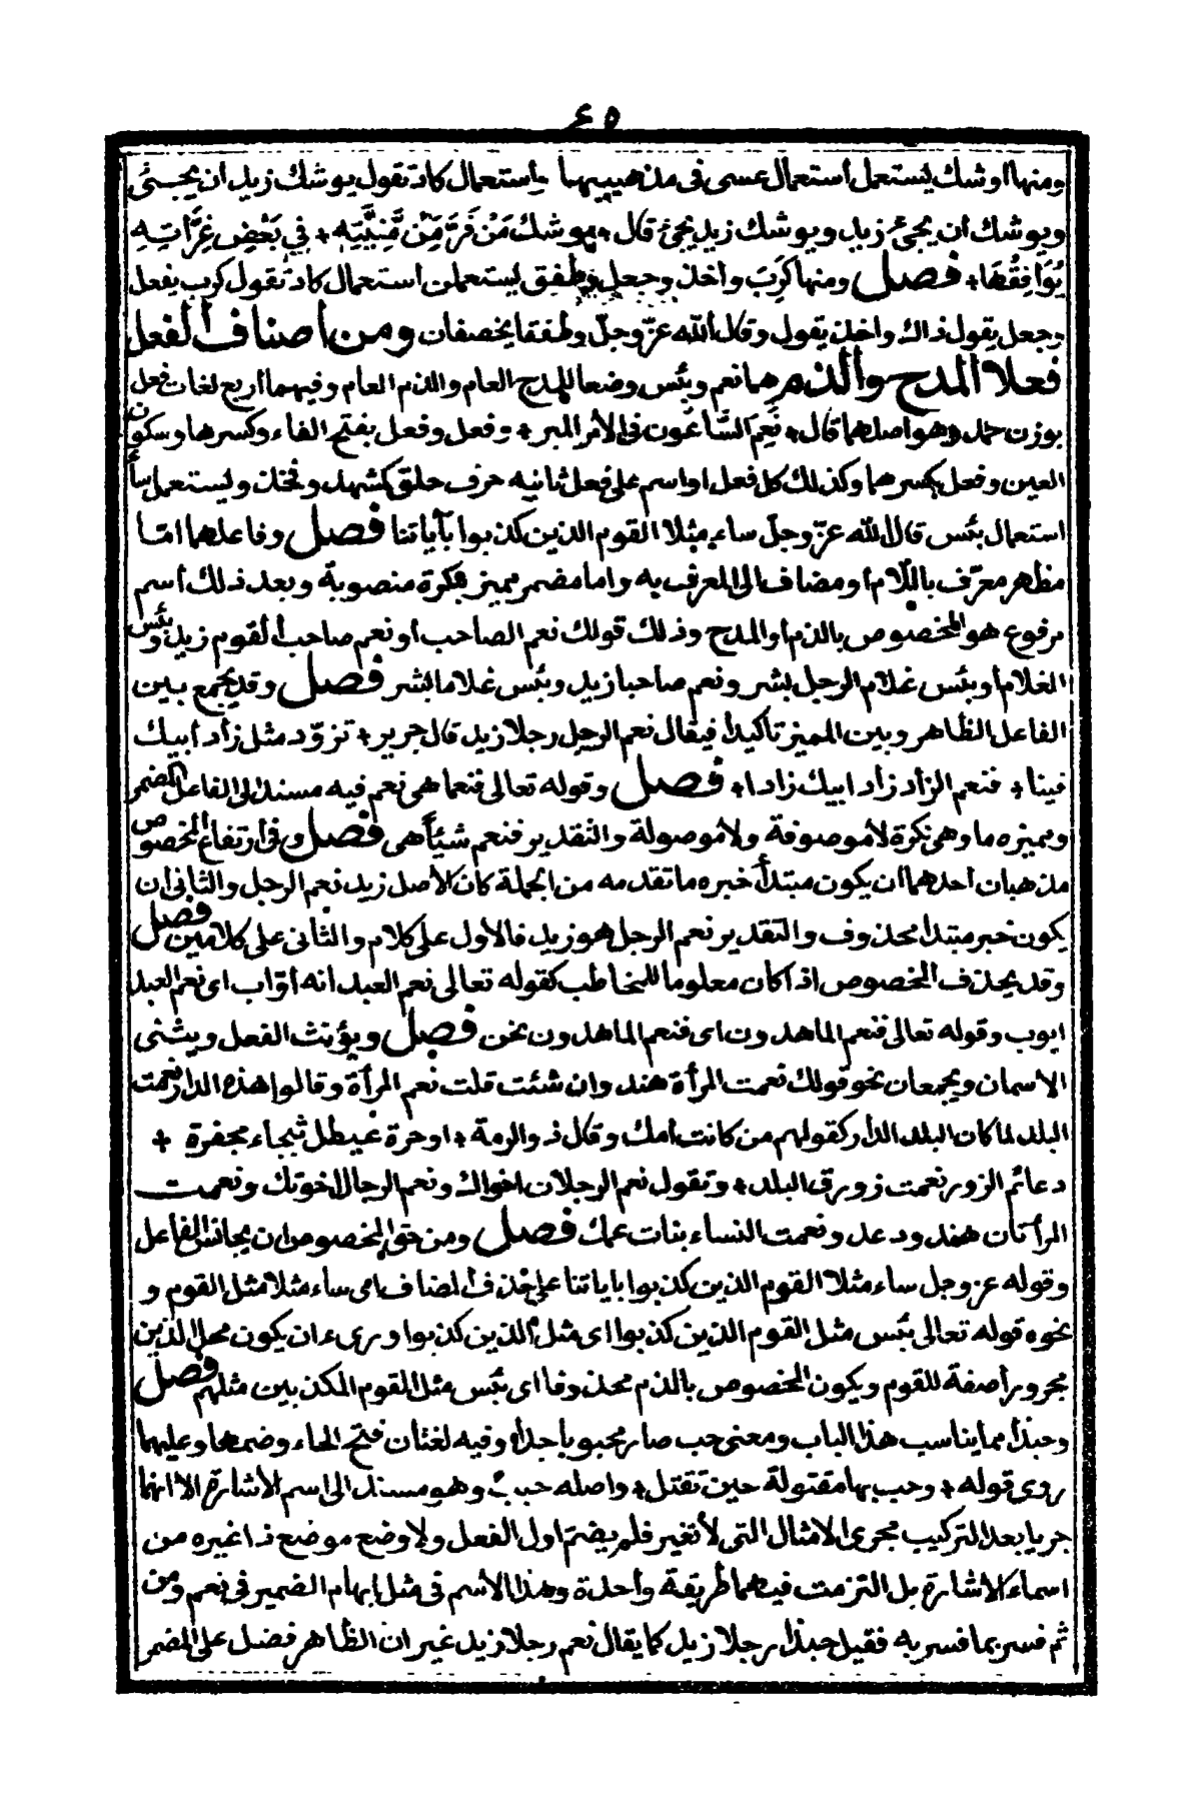 ٤٥
ومنها اوشك يستعمل استعمال عسى فى مذهبيها واستعمال كاد تقول يوشك زيد ان يجئ
ويوشك ان يجئ زيد ويوشك زيد يجئ قال + يوشك مَنْ فَرَّ مِنْ مَّنِيَّتِهِ + فِي بَعْضِ غِرَّاتِهِ
يُوَافِقُهَا + فصل ومنها كَرَبَ واخذ وجعل وطفق يستعملن استعمال كاد تقول كرب يفعل
وجعل يقول ذاك واخذ يقول وقال الله عزّ وجلّ وطفقا يخصفان ومن أصناف ألفعل
فعلا المدح وألذم هما نعم وبئس وضعا للمدح العام والذم العام وفيهما اربع لغات فعل
بوزن حمد وهو اصلهما قال + نَعِمَ السَّاعُون فى الأمر المبر + وفعل وفعل بفتح الفاء وكسرها وسكون
العين وفعل بكسرهما وكذلك كل فعل او اسم على فعل ثانيه حرف حلق كشهد وفخذ ويستعمل ساء
استعمال بئس قال الله عزّ وجلّ ساء مثلا القوم الذين كذبوا بآياتنا فصل وفاعلهما امّا
مظهر معرّف باللّام او مضاف الى المعرف به واما مضمر مميز بنكرة منصوبة وبعد ذلك اسم
مرفوع هو المخصوص بالذم او المدح وذلك قولك نعم الصاحب او نعم صاحب القوم زيد وبئس
الغلام او بئس غلام الرجل بشر ونعم صاحبا زيد وبئس غلاما بشر فصل وقد يجمع بين
الفاعل الظاهر وبين المميز تاكيدا فيقال نعم الرجل رجلا زيد قال جرير + تزوّد مثل زاد ابيك
فينا + فنعم الزاد زاد ابيك زادا + فصل وقوله تعالى فنعما هى نعم فيه مسند الى الفاعل المضمر
ومميزه ما وهى نكرة لا موصوفة ولا موصولة والتقدير فنعم شيئًا هى فصل وفى ارتفاع المخصوص
مذهبان احدهما ان يكون مبتدأ خبره ما تقدمه من الجملة كان الأصل زيد نعم الرجل والثانى ان
يكون خبر مبتدا محذوف والتقدير نعم الرجل هو زيد فالأول على كلام والثانى على كلامين فصل
وقد يحذف المخصوص اذا كان معلوما للمخاطب كقوله تعالى نعم العبد انه اوّاب اى نعم العبد
ايوب وقوله تعالى فنعم الماهدون اى فنعم الماهدون نحن فصل ويؤنث الفعل ويثنى
الاسمان ويجمعان نحو قولك نعمت المرأة هند وان شئت قلت نعم المرأة وقالوا هذه الدار نعمت
البلد لما كان البلد الدار كقولهم من كانت امك وقال ذو الرمة + او حرة عيطل ثبجاء مجفرة +
دعائم الزور نعمت زورق البلد + وتقول نعم الرجلان اخواك ونعم الرجال اخوتك ونعمت
المرأتان هند ودعد ونعمت النساء بنات عمك فصل ومن حق المخصوص ان يجانس الفاعل
وقوله عز وجل ساء مثلا القوم الذين كذبوا باياتنا على حذف المضاف اى ساء مثلا مثل القوم و
نحوه قوله تعالى بئس مثل القوم الذين كذبوا اى مثل الذين كذبوا ورىء ان يكون محل الذين
مجرورا صفة للقوم ويكون المخصوص بالذم محذوفا اى بئس مثل القوم المكذبين مثلهم فصل
وحبذا مما يناسب هذا الباب ومعنى حب صار محبوبا جدا وفيه لغتان فتح الحاء وضمها وعليهما
روى قوله + وحب بها مقتولة حين تقتل + واصله حبب وهو مسند الى اسم الأشارة الا انهما
جريا بعد التركيب مجرى الامثال التى لا تغير فلم يضم اول الفعل ولا وضع موضع ذا غيره من
اسماء الاشارة بل التزمت فيهما طريقة واحدة وهذا الأسم فى مثل إبهام الضمير فى نعم ومن
ثم فسر بما فسر به فقيل حبذا رجلا زيد كما يقال نعم رجلا زيد غير ان الظاهر فضل على المضمر